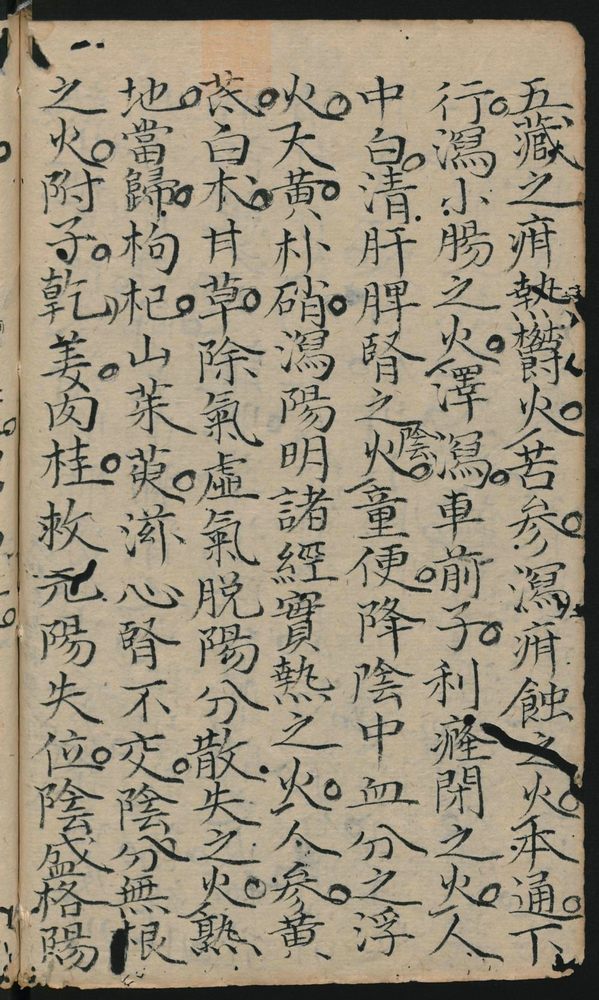 五藏之疳熱欝火苦参瀉疳蝕之火木通下
行瀉小腸之火澤瀉車前子利癃閉之火人
中白清肝脾腎之陰火童便降陰中血分之浮
火大黄朴硝瀉陽明諸經實熱之火人参黄
芪白朮甘草除氣虛氣脱陽分散失之火熟
地當歸枸杞山茱萸滋心腎不交陰分無根
之火附子乾姜肉桂救元陽失位陰盛格陽